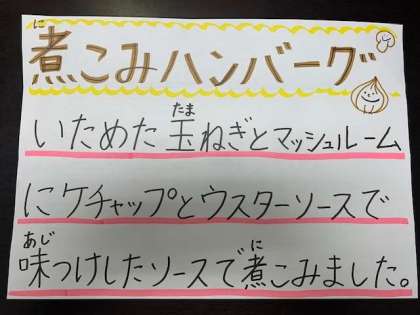 煮こみハンバーグ
いためた玉ねぎとマッシュルーム
にケチャップとウスターソースで
味つけしたソースで煮こみました。